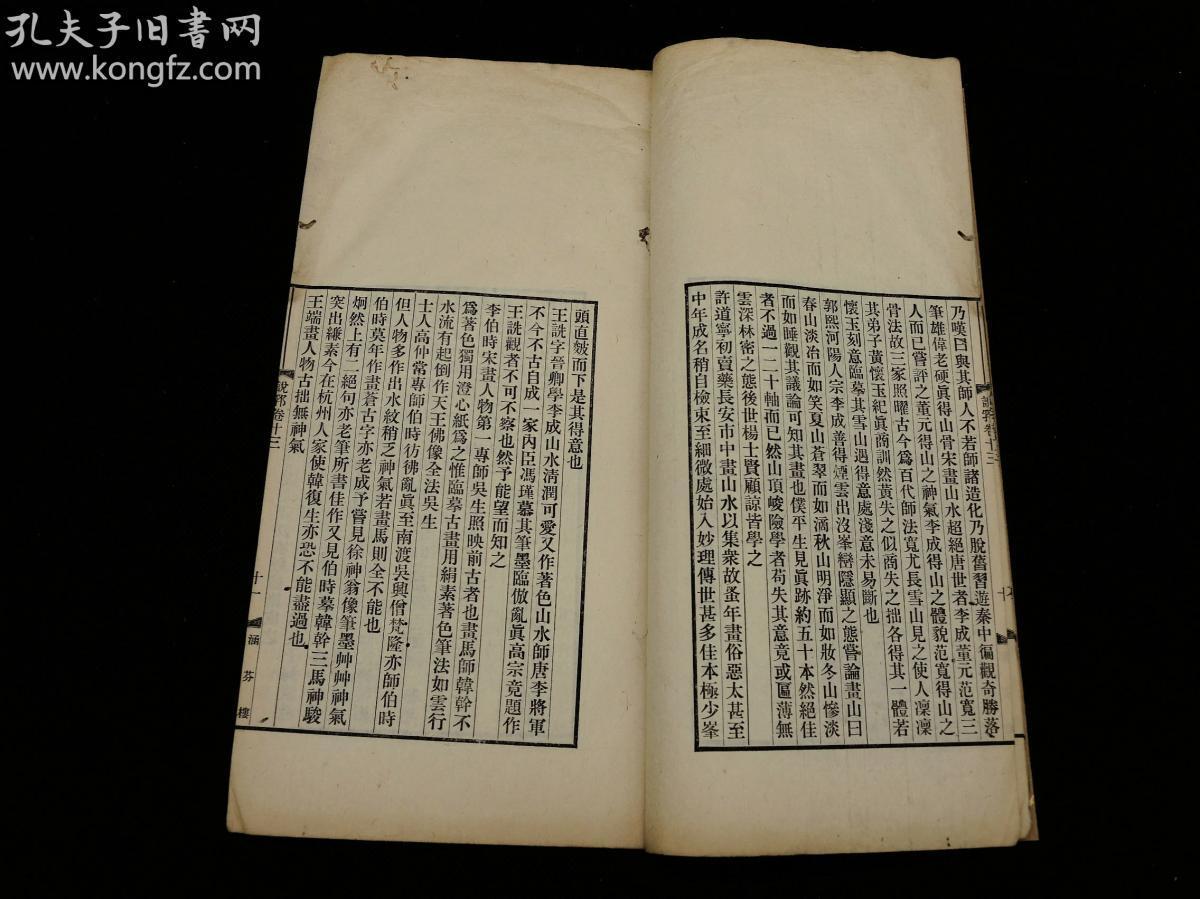 孔夫子旧书网
www.kongfz.com
乃嘆曰與其師人不若師諸造化乃脫舊習遊秦中徧觀奇勝落
筆雄偉老硬眞得山骨宋畫山水超絕唐世者李成董元范寬三
人而已嘗評之董元得山之神氣李成得山之體貌范寬得山之
骨法故三家照曜古今爲百代師法寬尤長雪山見之使人凜凜
其弟子黃懷玉紀眞商訓然黃失之似商失之拙各得其一體若
懷玉刻意臨摹其雪山遇得意處淺意未易斷也
郭熙河陽人宗李成善得煙雲出沒峯巒隱顯之態嘗論畫山曰
春山淡冶而如笑夏山蒼翠而如滴秋山明淨而如妝冬山慘淡
而如睡觀其議論可知其畫也僕平生見眞跡約五十本然絕佳
者不過一二十軸而已然山頂峻險學者苟失其意竟或匾薄無
雲深林密之態後世楊士賢顧諒皆學之
許道寧初賣藥長安市中畫山水以集衆故蚤年畫俗惡太甚至
中年成名稍自檢束至細微處始入妙理傳世甚多佳本極少峯
說郛卷十三
十
頭直皴而下是其得意也
王詵字晉卿學李成山水淸潤可愛又作著色山水師唐李將軍
不今不古自成一家內臣馮瑾慕其筆墨臨倣亂眞高宗竟題作
王詵觀者不可不察也然予能望而知之
李伯時宋畫人物第一專師吳生照映前古者也畫馬師韓幹不
爲著色獨用澄心紙爲之惟臨摹古畫用絹素著色筆法如雲行
水流有起倒作天王佛像全法吳生
士人高仲常專師伯時彷彿亂眞至南渡吳興僧梵隆亦師伯時
但人物多作出水紋稍乏神氣若畫馬則全不能也
伯時莫年作畫蒼古字亦老成予嘗見徐神翁像筆墨艸艸神氣
炯然上有二絕句亦老筆所書佳作又見伯時摹韓幹三馬神駿
突出縑素今在杭州人家使韓復生亦恐不能盡過也
王端畫人物古拙無神氣
說郛卷十三
十一
涵芬樓